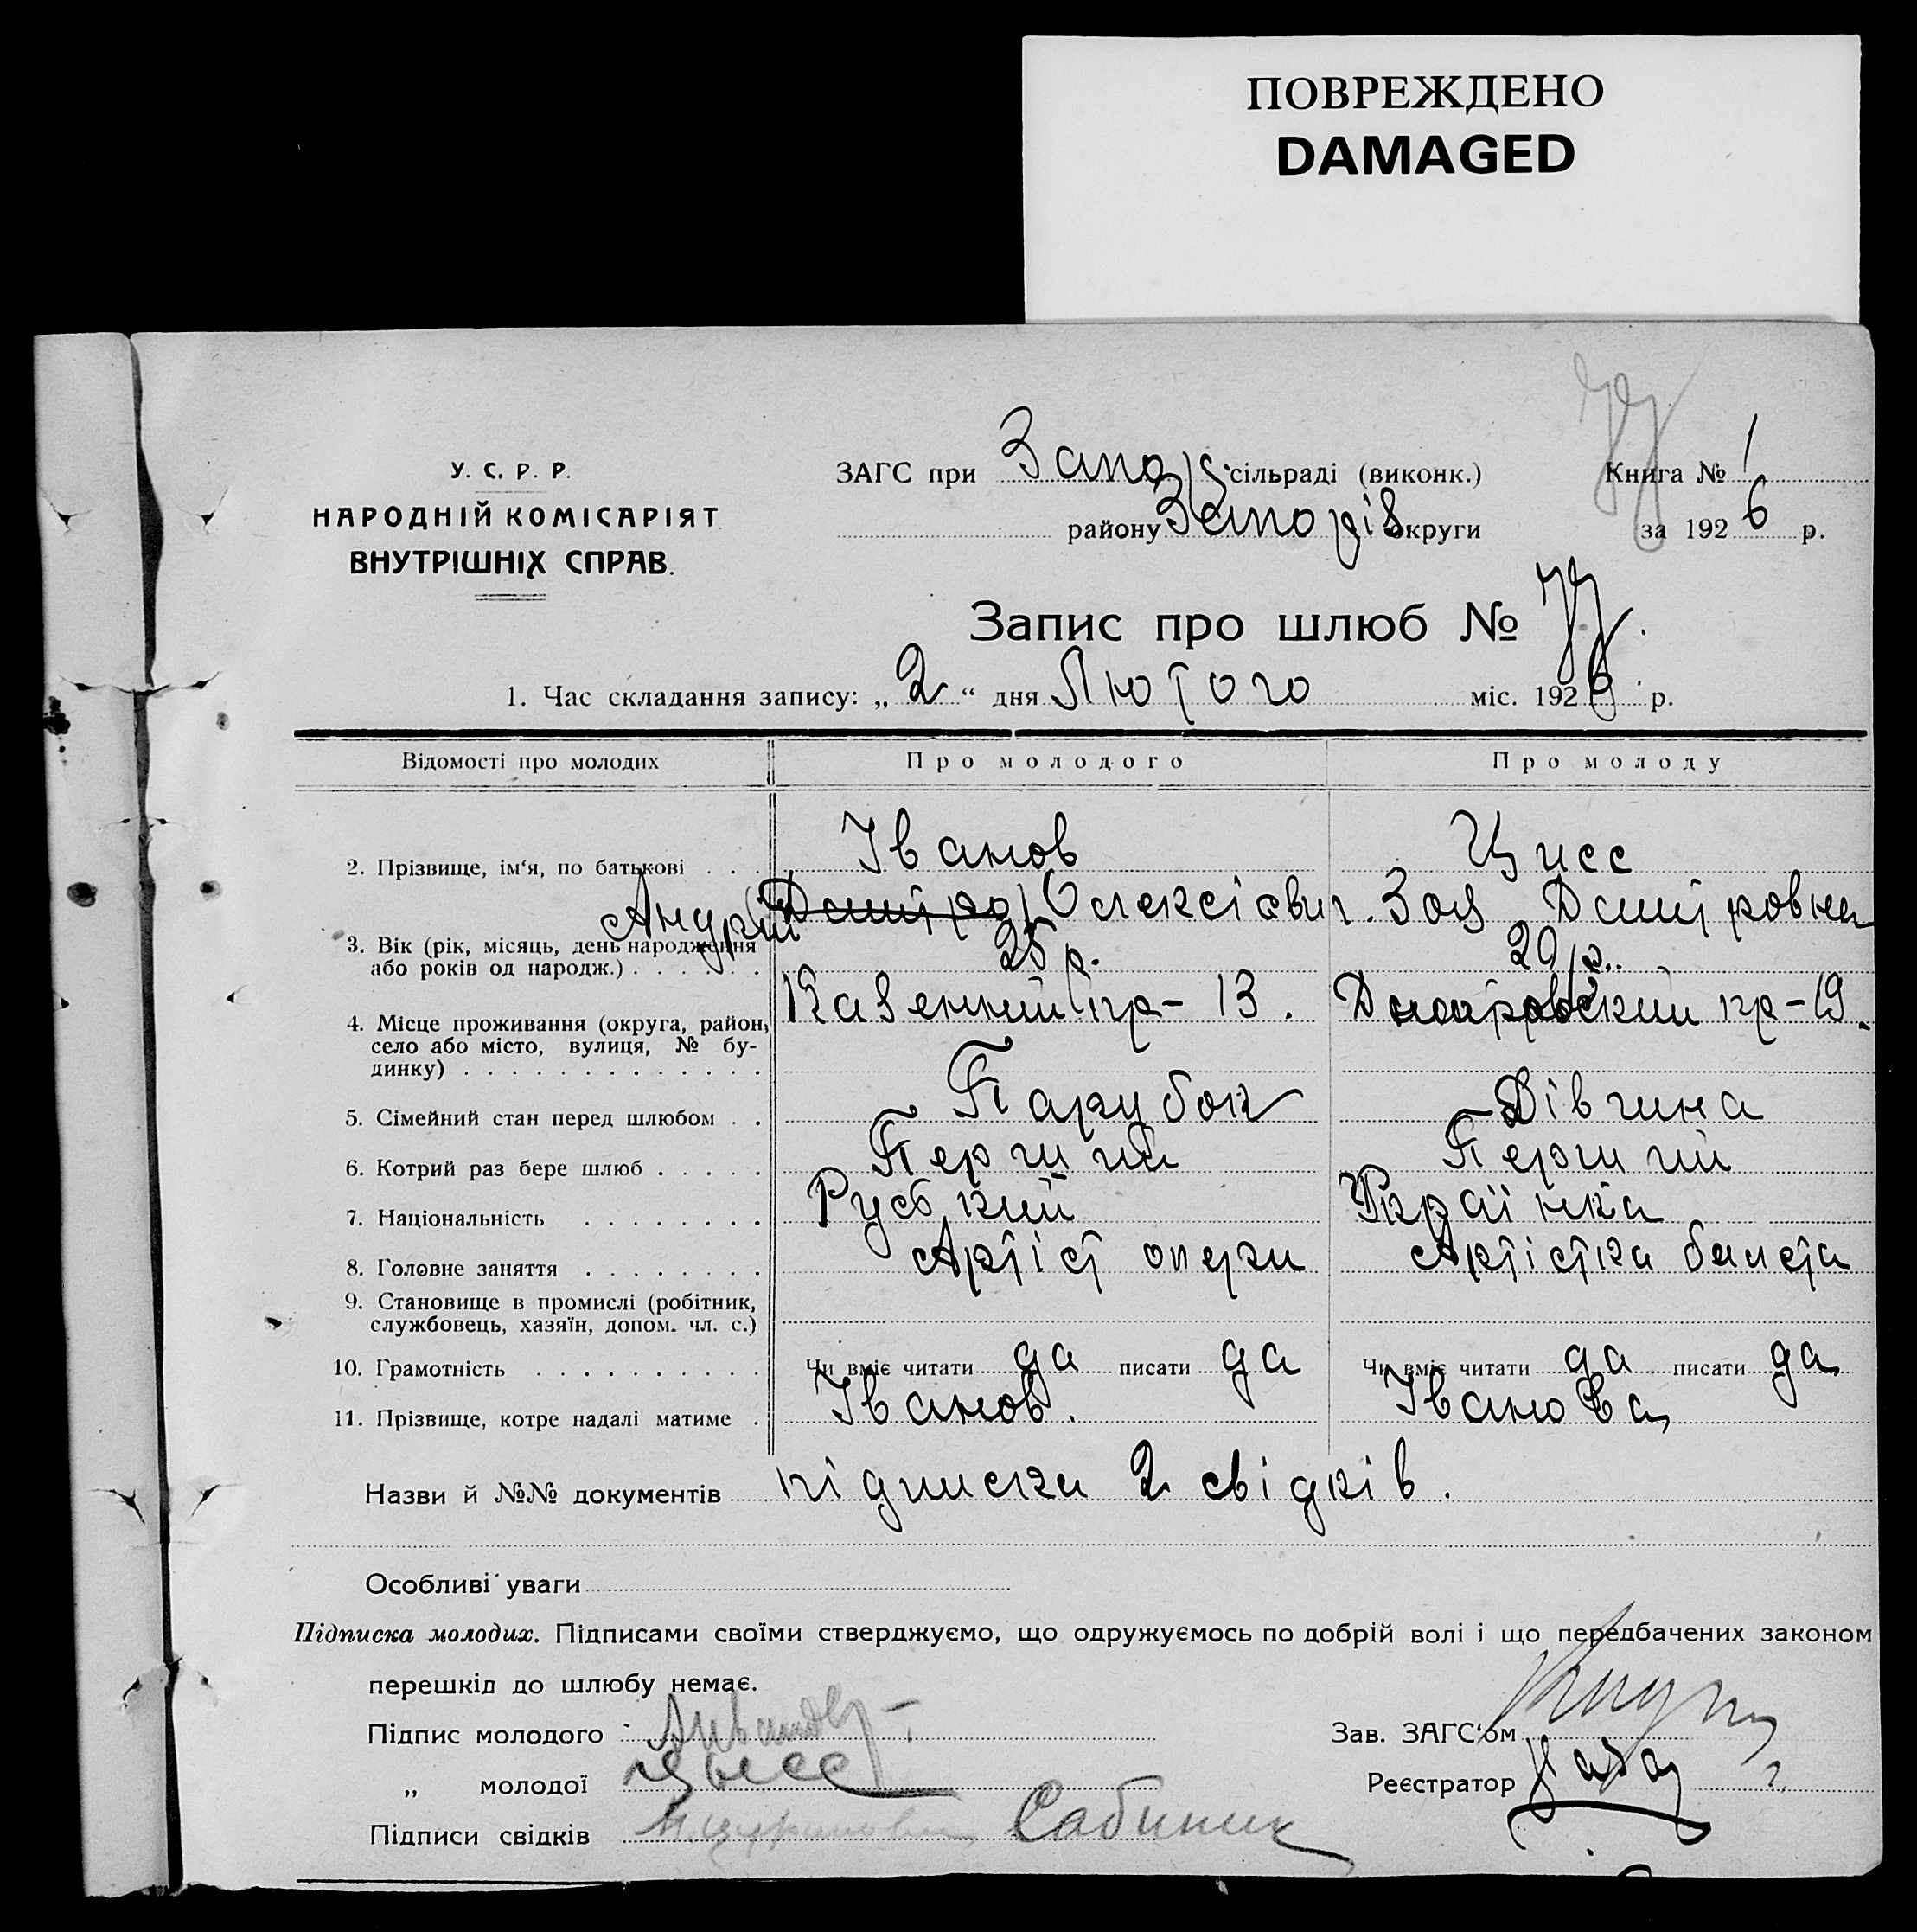 ПОВРЕЖДЕНО
DAMAGED
У. С. Р. Р.
НАРОДНІЙ КОМІСАРІЯТ
ВНУТРІШНІХ СПРАВ.
ЗАГС при Запоріз. сільраді (виконк.)
району Запорів округи
Книга № 1
за 1926 р.
Запис про шлюб № 77.
1. Час складання запису: „2“ дня Лютого міс. 1926 р.
Відомості про молодих Про молодого Про молоду
2. Прізвище, ім‘я, по батькові . . . Іванов Цисс
Андрій Дмитро Олексієвич. Зоя Дмитровна
3. Вік (рік, місяць, день народження або років од народж.) . . . . . . 25 р. 20 р.
4. Місце проживання (округа, район, село або місто, вулиця, № будинку) . . . . . . . . . . . . . Казенний пр- 13. пр-19.
5. Сімейний стан перед шлюбом . . Парубок Дівчина
6. Котрий раз бере шлюб . . . . . Перший Перший
7. Національність . . . . . . . . Руський Українка
8. Головне заняття . . . . . . . . Артіст опери Артістка балета
9. Становище в промислі (робітник, службовець, хазяїн, допом. чл. с.)
10. Грамотність . . . . . . . . . . Чи вміє читати да писати да Чи вміє читати да писати да
11. Прізвище, котре надалі матиме . Іванов. Іванова
Назви й №№ документів підписка 2 свідків.
Особливі уваги
Підписка молодих. Підписами своїми стверджуємо, що одружуємось по добрій волі і що передбачених законом
перешкід до шлюбу немає.
Підпис молодого АИванов
„ молодої Цысс
Підписи свідків Сабинин
Зав. ЗАГС‘ом
Реєстратор